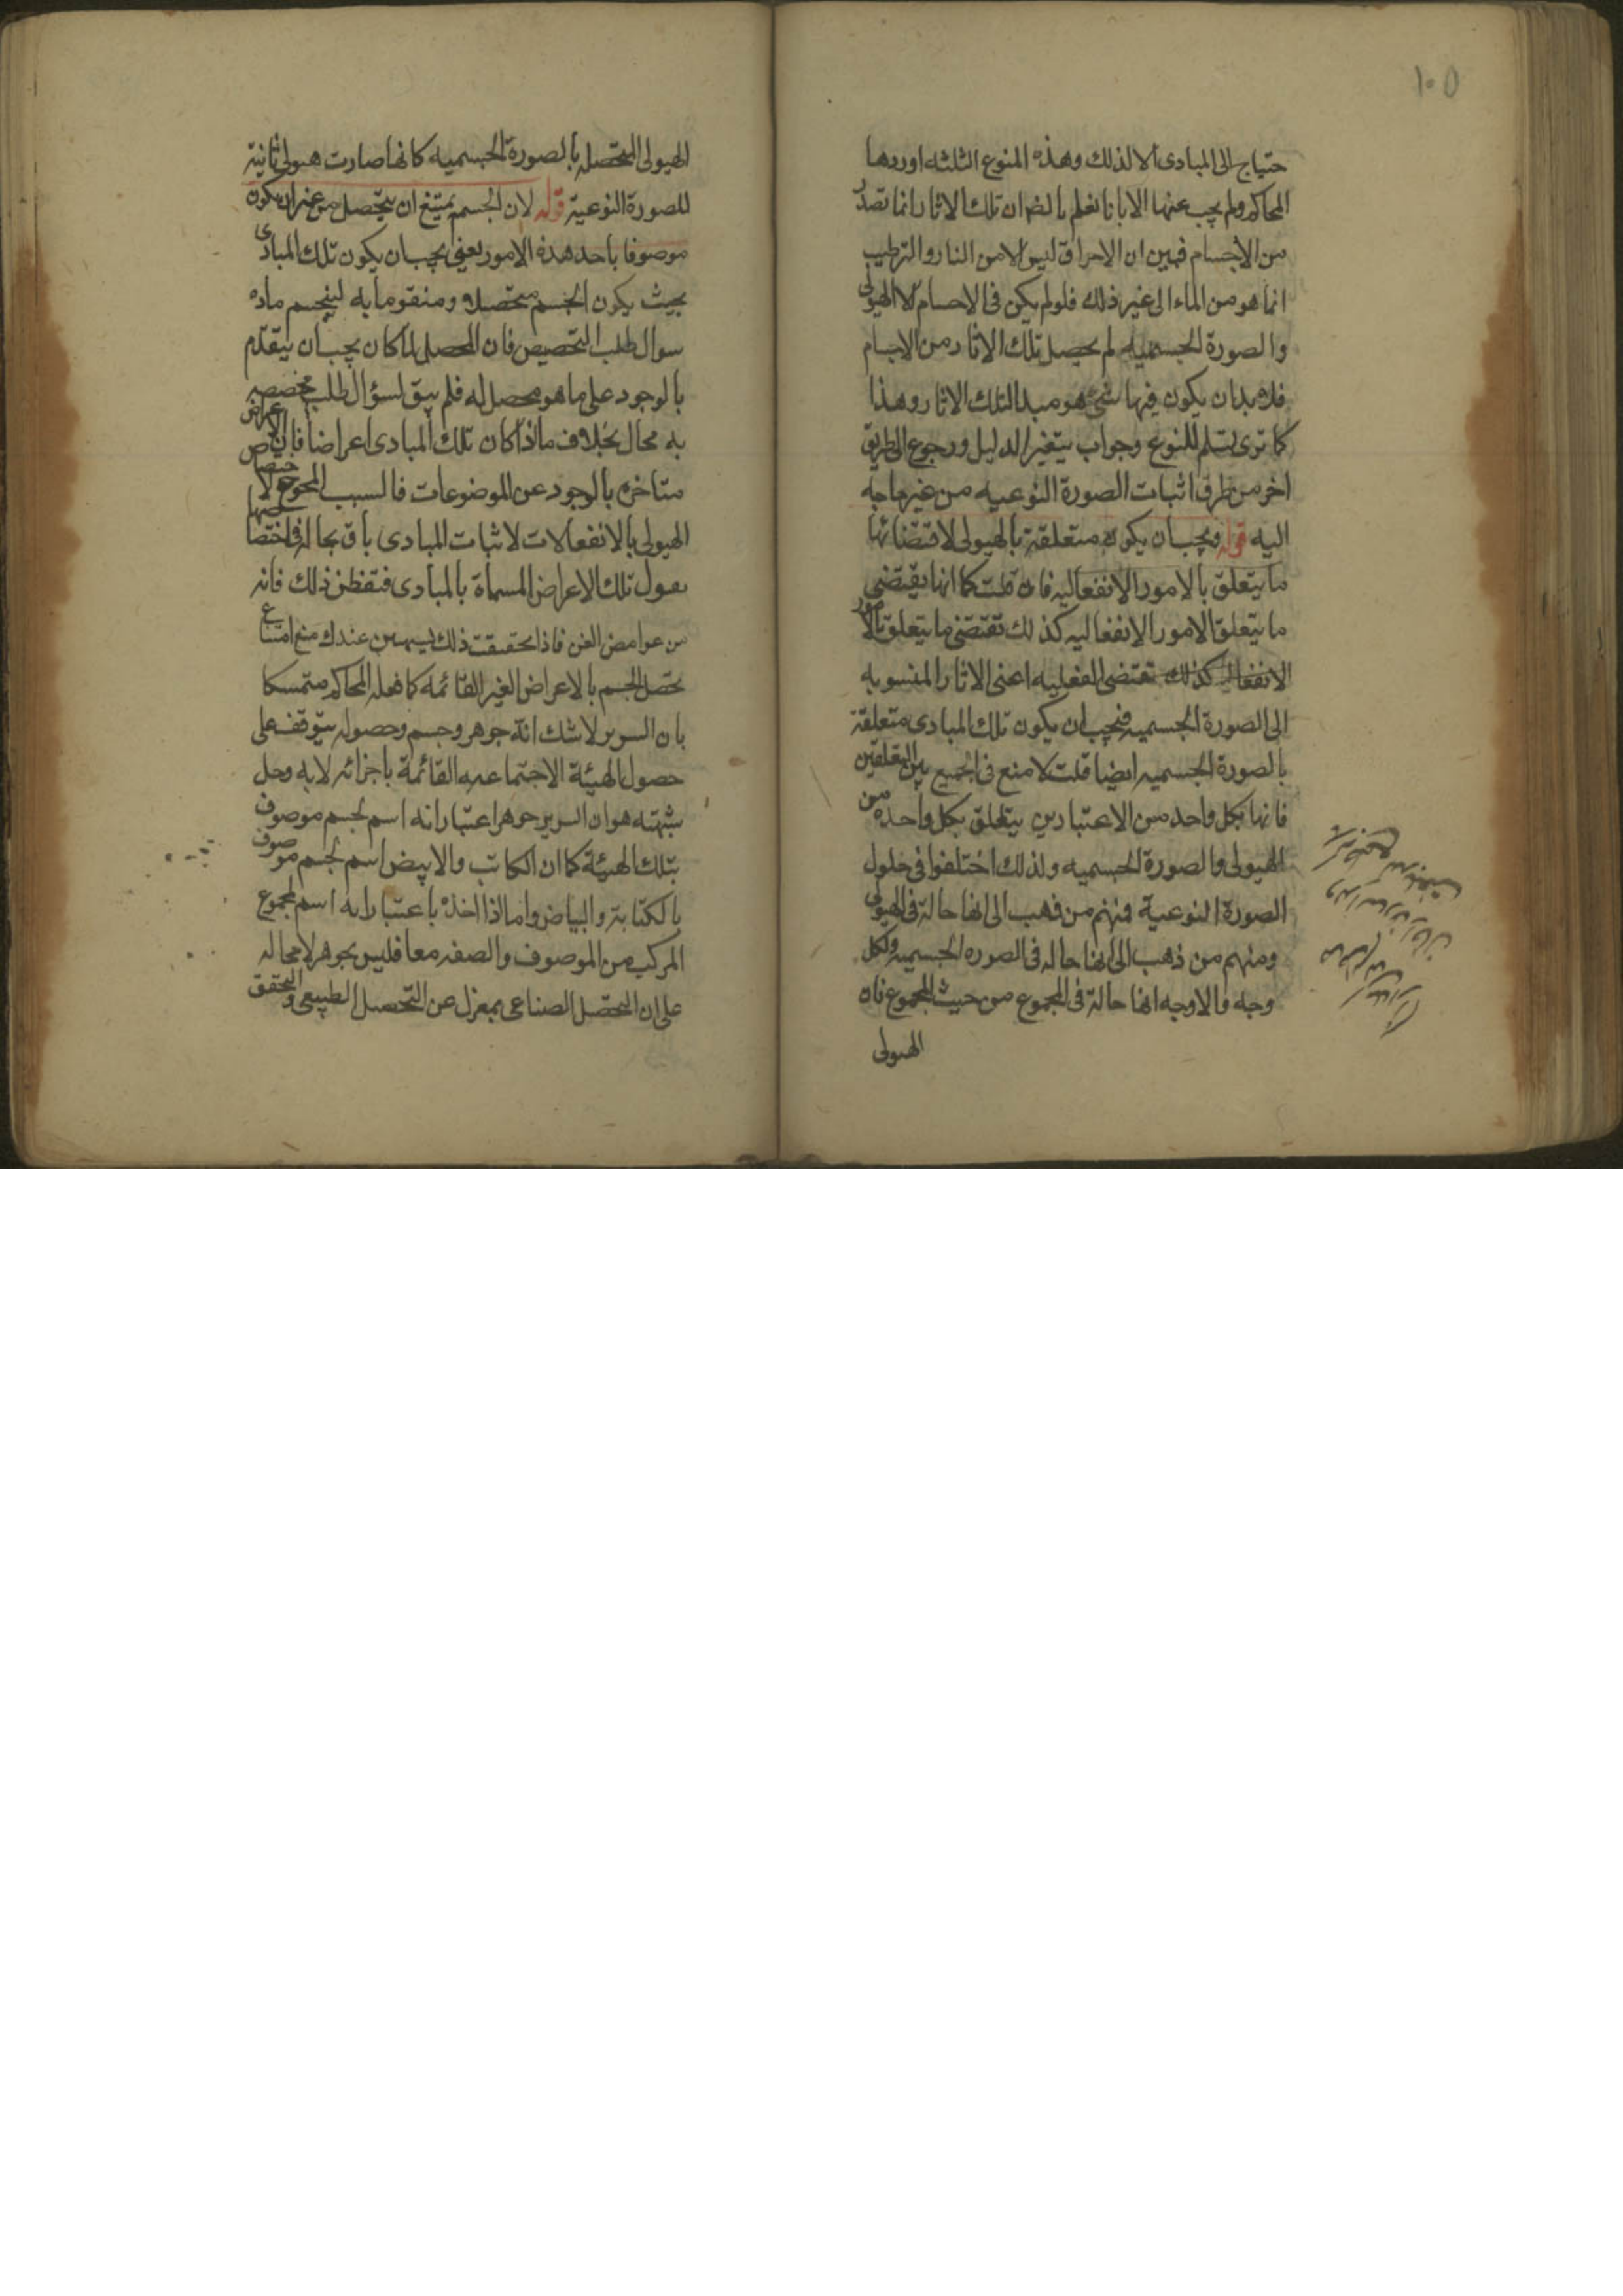 ١٠٥
حتياج الى المبادى الا لذلك وهذه المنوع الثلثه اوردها
المحاكم ولم يجب عنها الا بانا نعلم بالضر ان تلك الاثار انما تصدر
من الاجسام فهين ان الاحراق ليس الا من النار والترطيب
انما هو من الماء الى غير ذلك فلو لم يكن فى الاجسام الا الهيولى
والصورة الجسميه لم يحصل تلك الاثار من الاجسام
فلا بد ان يكون فيها شئ هو مبدا لتلك الاثار وهذا
كما ترى تسلم للمنوع وجواب بتغير الدليل ورجوع الى طريق
اخر من طرق اثبات الصورة النوعيه من غير حاجه
اليه قوله ويجب ان يكون متعلقة بالهيولى لاقتضائها
ما يتعلق بالامور الانفعاليه فان قلت كما انها يقتضى
ما يتعلق الامور الانفعاليه كذلك تقتضى ما يتعلق بالامور
الانفعاليه كذلك تقتضى الفعليه اعنى الاثار المنسوبه
الى الصورة الجسميه فيجب ان يكون تلك المبادى متعلقة
بالصورة الجسميه ايضا قلت لا منع فى الجمع بين التعلقين
فانها بكل واحد من الاعتبارين يتعلق بكل واحده من
الهيولى والصورة الجسميه ولذلك اختلفوا فى حلول
الصورة النوعية فمنهم من ذهب الى انها حالة فى الهيولى
ومنهم من ذهب الى انها حاله فى الصوره الجسميه ولكل
وجه والاوجه انها حالة فى المجموع من حيث المجموع فان
الهيولى
الهيولى المتحصله بالصورة الجسميه كانها صارت هيولى ثانية
للصورة النوعية قوله لان الجسم يمتنع ان يتحصل من غير ان يكون
موصوفا باحد هذه الامور يعنى يجب ان يكون تلك المبادى
بحيث يكون الجسم متحصلا ومتقوما به لينجسم ماده
سوال طلب التخصيص فان المحصل لما كان يجب ان يتقدم
بالوجود على ما هو محصل له فلم يبق لسؤال طلب مخصصه
به محال بخلاف ما اذا كان تلك المبادى اعراضا فان الاعراض
متاخره بالوجود عن الموضوعات فالسبب المحوج لا
الهيولى بالانفعالات لاثبات المبادى باق بحاله فاختصا
بقبول تلك الاعراض المسماة بالمبادى فتفطن ذلك فانه
من غوامض الفن فاذا تحققت ذلك سيهين عندك منع امتناع
تحصل الجسم بالاعراض الغير القائمه كما فعله المحاكم متمسكا
بان السرير لا شك انه جوهر وجسم وحصوله يتوقف على
حصول الهيئة الاجتماعيه القائمة باجزائه لا به وحل
شبهته هو ان السرير جوهر اعتبار انه اسم لجسم موصوف
بتلك الهيئة كما ان الكاتب والابيض اسم لجسم موصوف
بالكتابة والبياض واما اذا اخذ باعتبار انه اسم لمجموع
المركب من الموصوف والصفه معا فليس بجوهر لا محاله
على ان التحصل الصناعى بمعزل عن التحصل الطبيعى والتحقق